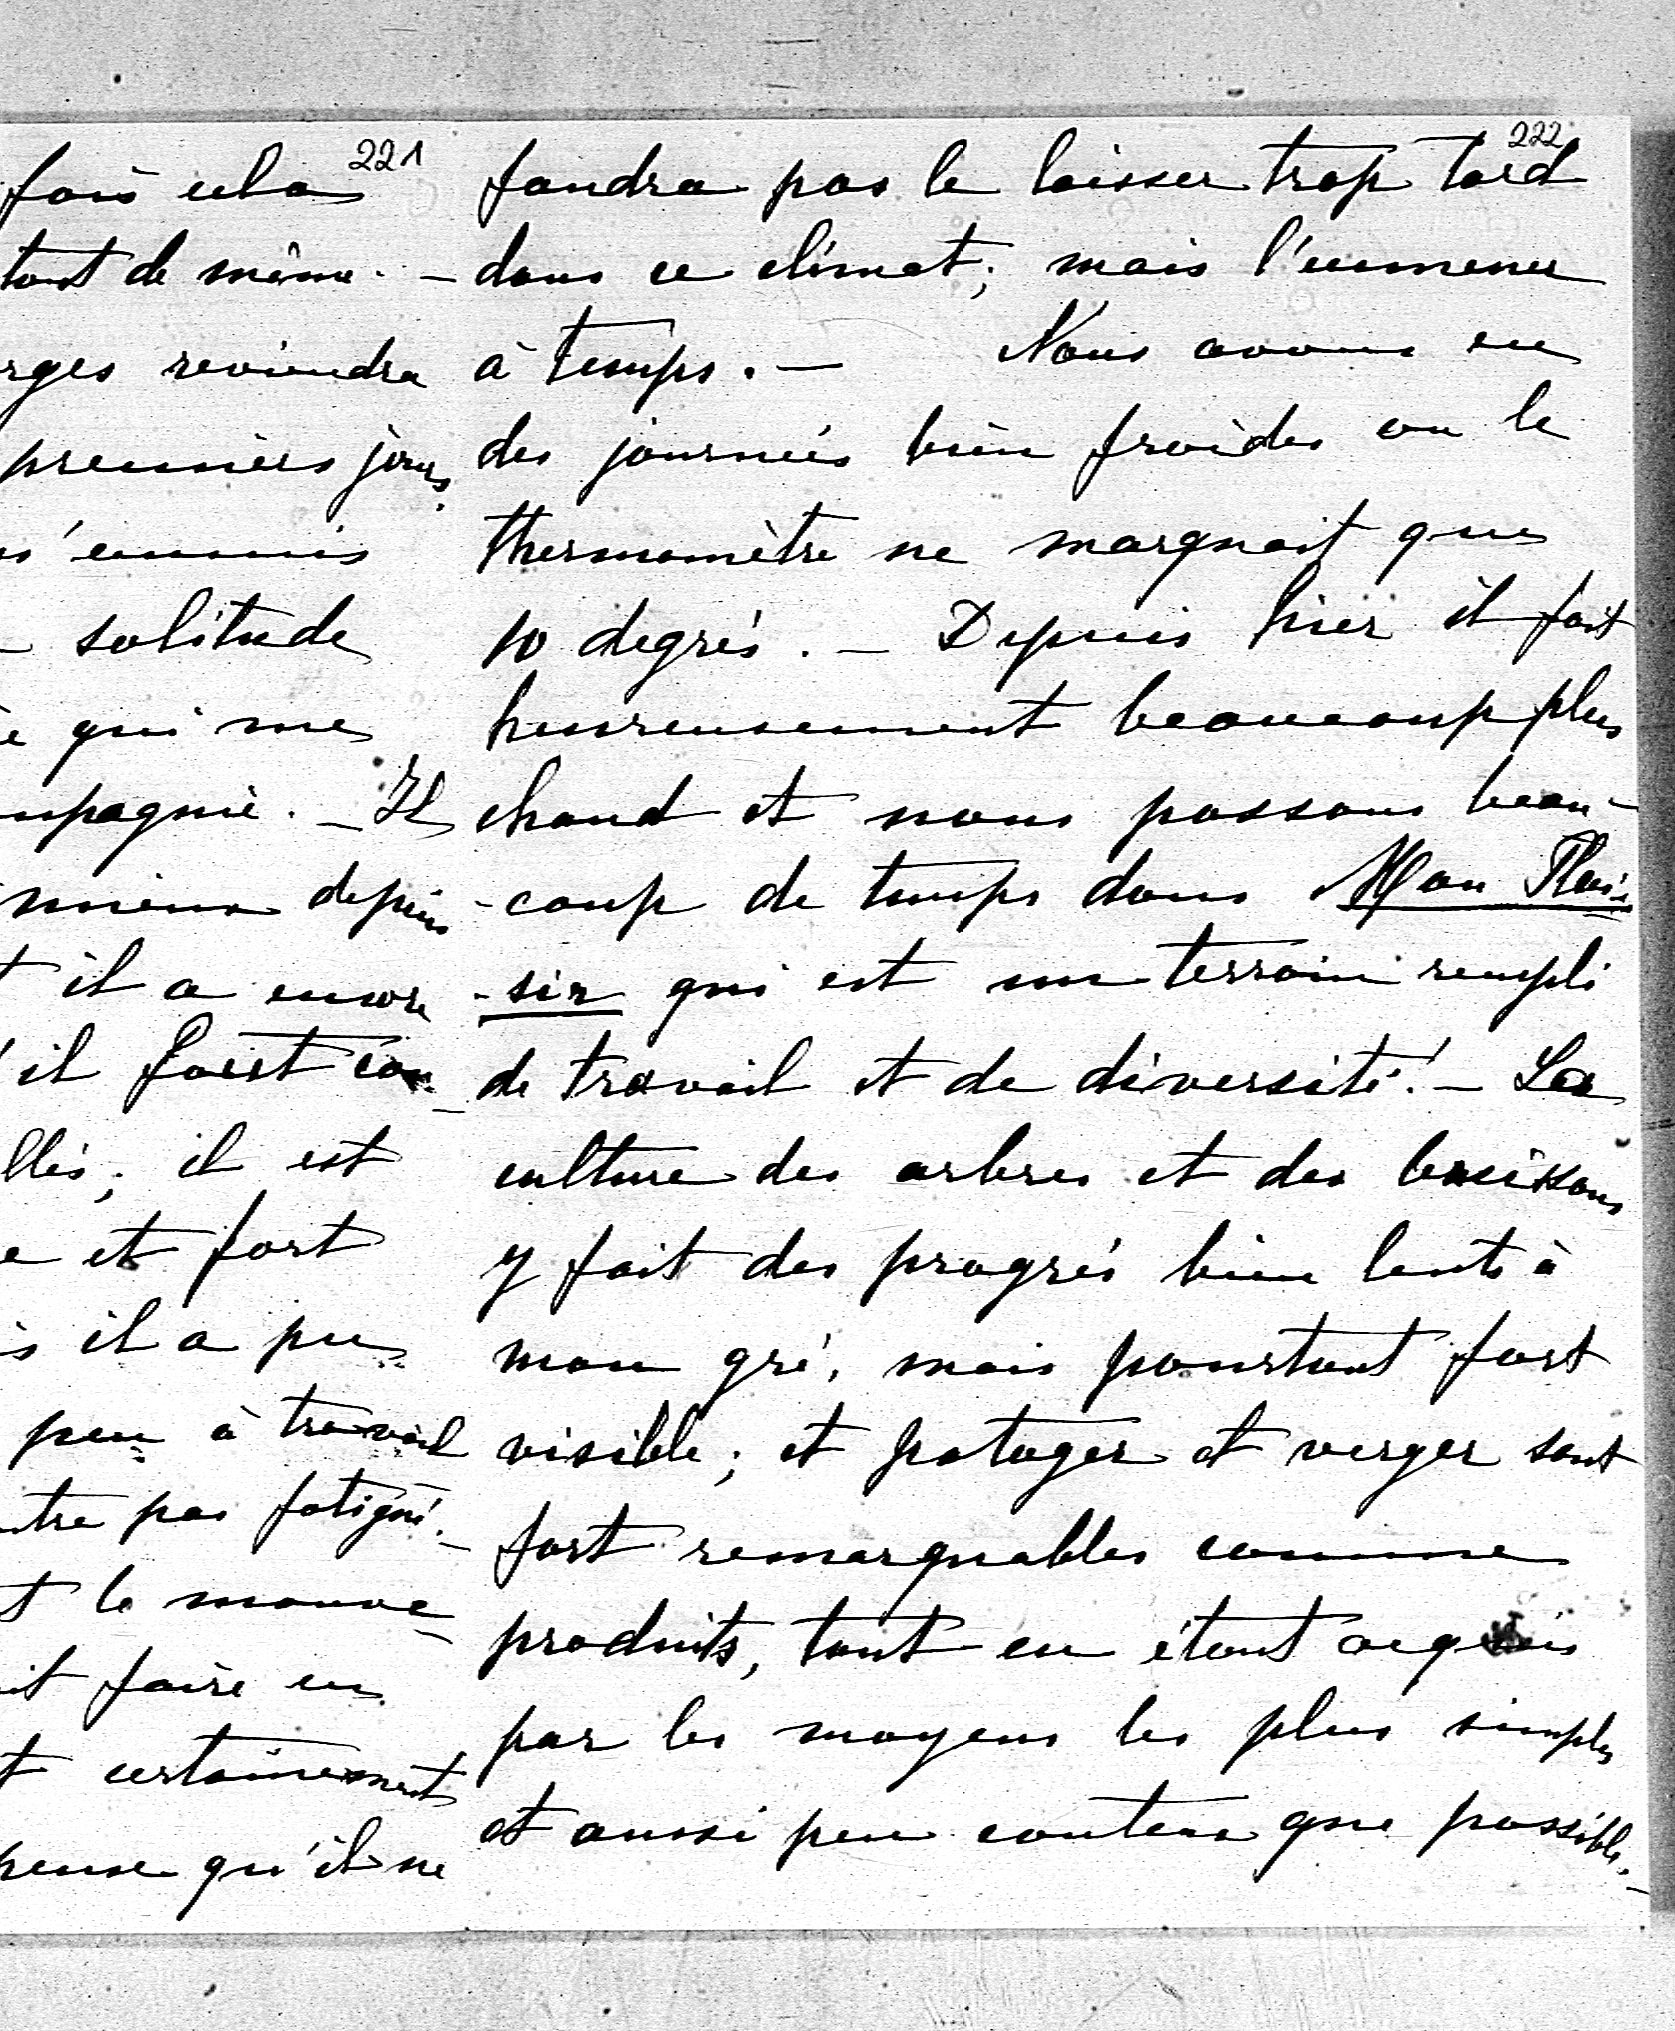 221
fois cela
tout de même. –
rges reviendra
premiers jours.
s'ennuis
– solitude
e qui me
mpagnie. – Il
mieux depuis
t il a encore
'il
llés; il est
e et fort
is il a pu
peu à travail
ntre pas fatigué. –
t le mouve–
it faire en
t certainement
pense qu'il ne
222
faudra pas le laisser trop tard
dans ce climat; mais l'emmener
à temps. – Nous avons eu
des journées bien froides ou le
thermomètre ne marquait que
10 degrés. – Depuis hier il fait
heureusement beaucoup plus
chaud et nous passons beau-
-coup de temps dans Mon Plai-
-sir qui est un terrain rempli
de travail et de diversité! – La
culture des arbres et des buissons
y fait des progrés bien lents à
mon gré, mais pourtant fort
visible; et potager et verger sont
fort remarquables comme
produits, tout en étant acquis
par les moyens les plus simples
et aussi peu couteux que possible. –